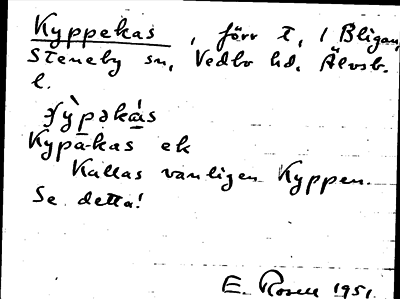 Kyppekas, förr t, i Bligan,
Steneby sn, Vedbo hd, Älvsb.
l.
Kypa-kas ek
Kallas vanligen Kyppen.
Se detta!
E. Rosell 1951.